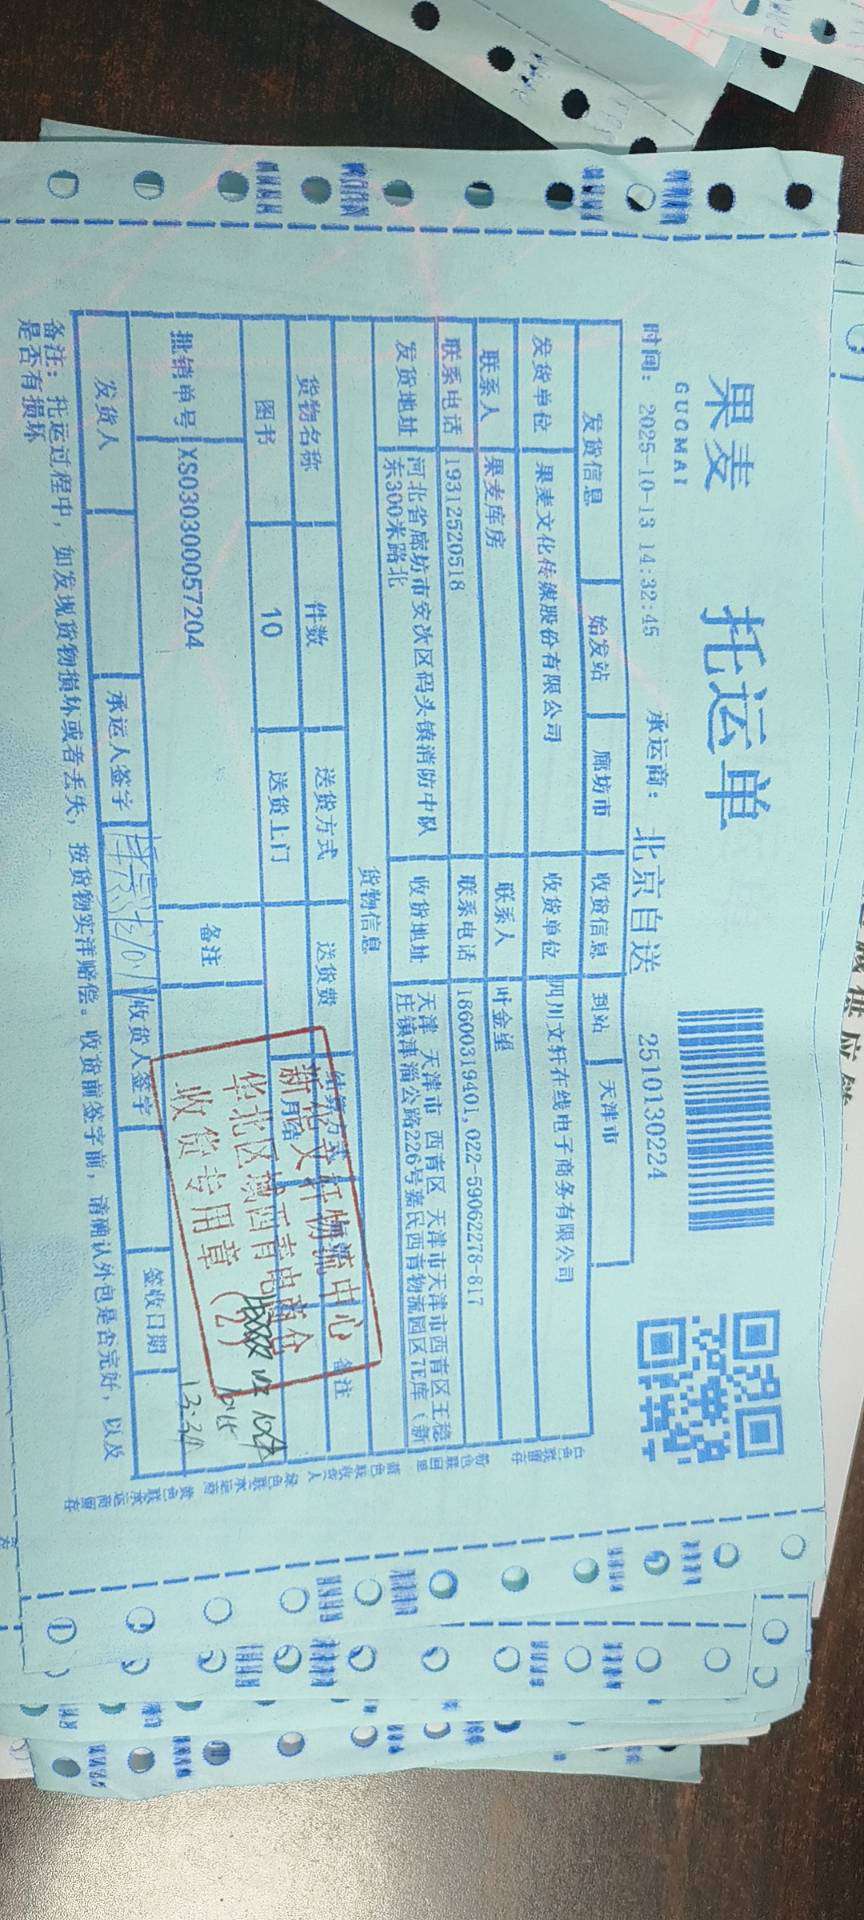 果麦
GUOMAI
托运单
时间: 2025-10-13 14:32:45
承运商: 北京自送
2510130224
发货信息 始发站 廊坊市 收货信息 到站 天津市
发货单位 果麦文化传媒股份有限公司 收货单位 四川文轩在线电子商务有限公司
联系人 果麦库房 联系人 叶金望
联系电话 19312520518 联系电话 18600319401,022-59062278-817
发货地址 河北省廊坊市安次区码头镇消防中队
东300米路北
收货地址 天津 天津市 西青区 天津市天津市西青区王稳
庄镇津淄公路226号嘉民西青物流园区7E库(新
货物信息
货物名称 件数 送货方式 送货费 结算方式 备注
图书 10 送货上门 月结
批销单号 XS030300057204 备注
发货人 承运人签字 收货人签字 签收日期
新华文轩物流中心
华北区域西青电商仓
收货专用章(2)
10.15
13:30
备注: 托运过程中, 如发现货物损坏或者丢失, 按货物实洋赔偿。收货前签字前, 请确认外包是否完好, 以及
是否有损坏
白色联留存
蓝色联收货人
绿色联承运商
黄色联承运商留存